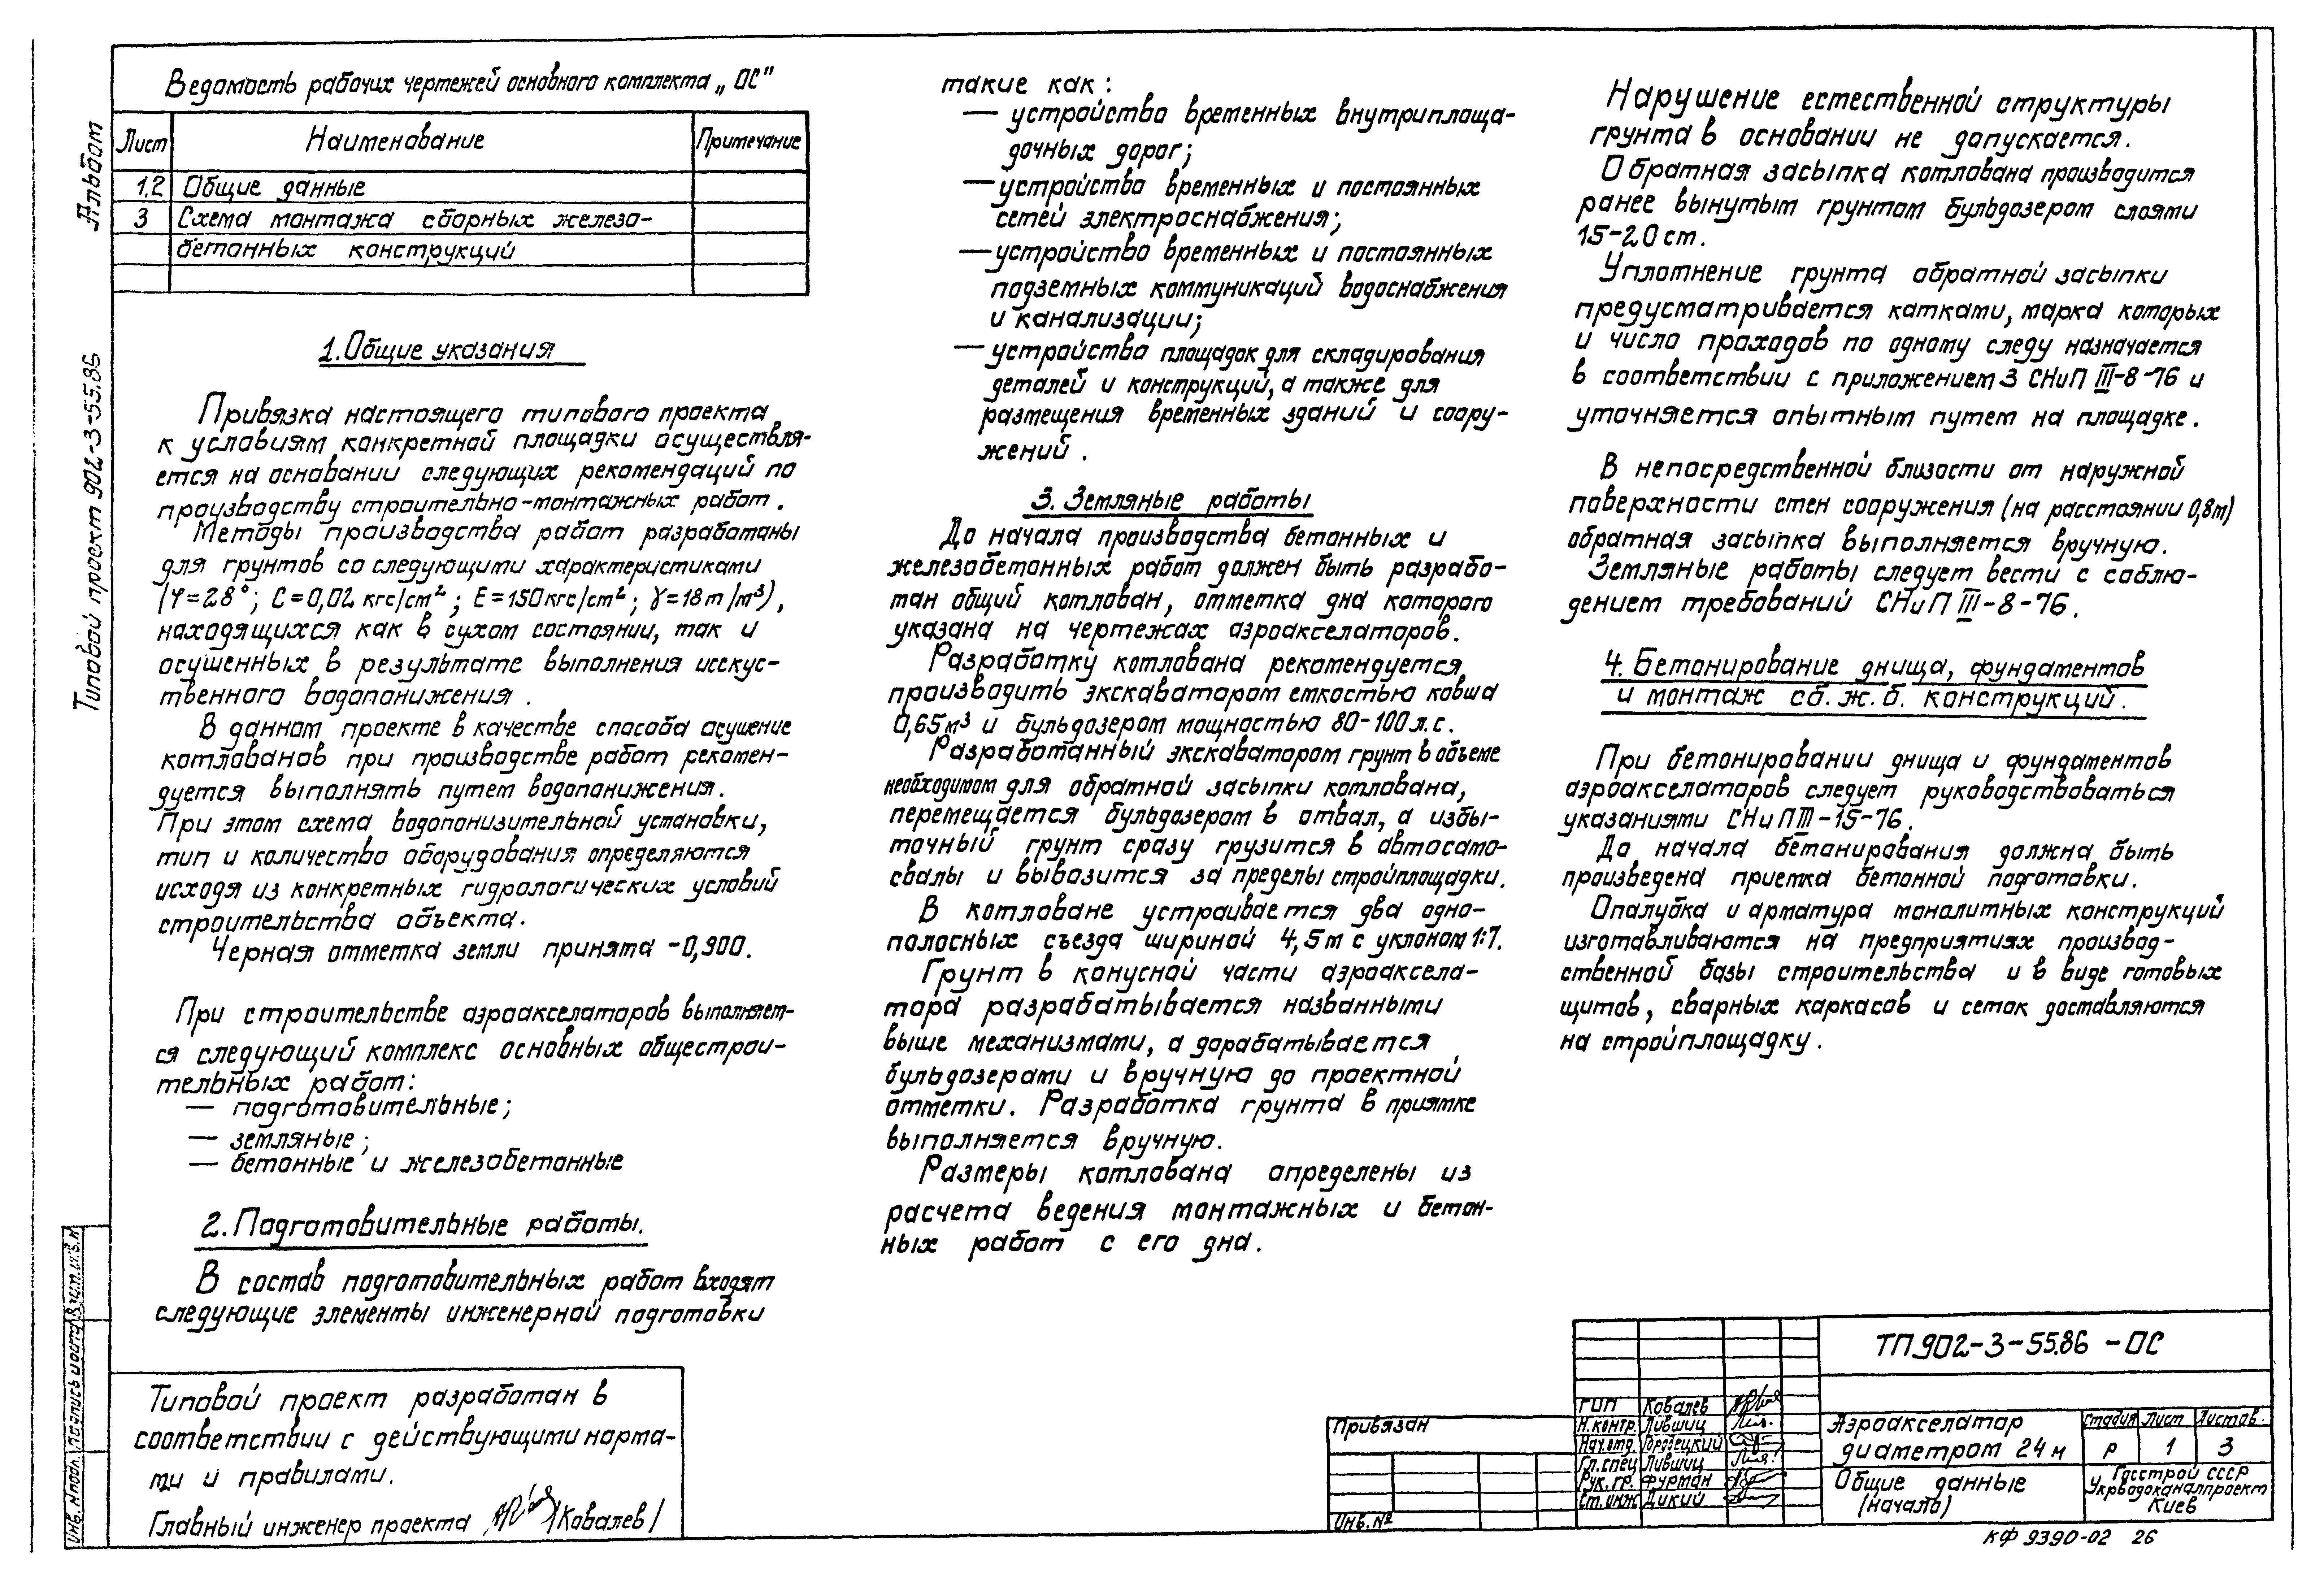 Ведомость рабочих чертежей основного комплекта „ОС"
Лист Наименование Примечание
1.2 Общие данные
3 Схема монтажа сборных железо-
бетонных конструкций
1. Общие указания
Привязка настоящего типового проекта
к условиям конкретной площадки осуществля-
ется на основании следующих рекомендаций по
производству строительно-монтажных работ.
Методы производства работ разработаны
для грунтов со следующими характеристиками
(φ=28°; С=0,02 кгс/см²; Е=150кгс/см²; γ=18т/м³),
находящихся как в сухом состоянии, так и
осушенных в результате выполнения исскус-
твенного водопонижения.
В данном проекте в качестве способа осушение
котлованов при производстве работ рекомен-
дуется выполнять путем водопонижения.
При этом схема водопонизительной установки,
тип и количество оборудования определяются
исходя из конкретных гидрологических условий
строительства объекта.
Черная отметка земли принята -0,900.
При строительстве аэроакселаторов выполняет-
ся следующий комплекс основных общестрои-
тельных работ:
— подготовительные;
— земляные;
— бетонные и железобетонные
2. Подготовительные работы.
В состав подготовительных работ входят
следующие элементы инженерной подготовки
такие как:
— устройство временных внутриплоща-
дочных дорог;
— устройство временных и постоянных
сетей электроснабжения;
— устройство временных и постоянных
подземных коммуникаций водоснабжения
и канализации;
— устройство площадок для складирования
деталей и конструкций, а также для
размещения временных зданий и соору-
жений.
3. Земляные работы
До начала производства бетонных и
железобетонных работ должен быть разрабо-
тан общий котлован, отметка дна которого
указана на чертежах аэроакселаторов.
Разработку котлована рекомендуется
производить экскаватором емкостью ковша
0,65м³ и бульдозером мощностью 80-100л.с.
Разработанный экскаватором грунт в объеме
необходимом для обратной засыпки котлована,
перемещается бульдозером в отвал, а избы-
точный грунт сразу грузится в автосамо-
свалы и вывозится за пределы стройплощадки.
В котловане устраивается два одно-
полосных съезда шириной 4,5м с уклоном 1:7.
Грунт в конусной части аэроаксела-
тора разрабатывается названными
выше механизмами, а дорабатывается
бульдозерами и вручную до проектной
отметки. Разработка грунта в приямке
выполняется вручную.
Размеры котлована определены из
расчета ведения монтажных и бетон-
ных работ с его дна.
Нарушение естественной структуры
грунта в основании не допускается.
Обратная засыпка котлована производится
ранее вынутым грунтом бульдозером слоями
15-20см.
Уплотнение грунта обратной засыпки
предусматривается катками, марка которых
и число проходов по одному следу назначается
в соответствии с приложением 3 СНиП III-8-76 и
уточняется опытным путем на площадке.
В непосредственной близости от наружной
поверхности стен сооружения (на расстоянии 0,8м)
обратная засыпка выполняется вручную.
Земляные работы следует вести с соблю-
дением требований СНиП III-8-76.
4. Бетонирование днища, фундаментов
и монтаж сб.ж.б. конструкций.
При бетонировании днища и фундаментов
аэроакселаторов следует руководствоваться
указаниями СНиП III-15-76.
До начала бетонирования должна быть
произведена приемка бетонной подготовки.
Опалубка и арматура монолитных конструкций
изготавливаются на предприятиях производ-
ственной базы строительства и в виде готовых
щитов, сварных каркасов и сеток доставляются
на стройплощадку.
Типовой проект разработан в
соответствии с действующими норма-
ми и правилами.
Главный инженер проекта /Ковалев/
Альбом
Типовой проект 902-3-55.86
Инв. № подл. Подпись и дата Взам. инв. №
Привязан
Инв. №
ГИП Ковалев
Н.контр. Лившиц
Нач.отд. Городецкий
Гл.спец Лившиц
Рук.гр. Фурман
Ст.инж. Дикий
ТП 902-3-55.86 -ОС
Аэроакселатор
диаметром 24м
Стадия Лист Листов.
Р 1 3
Общие данные
(начало)
Госстрой СССР
Укрводоканалпроект
Киев
КФ 9390-02 26